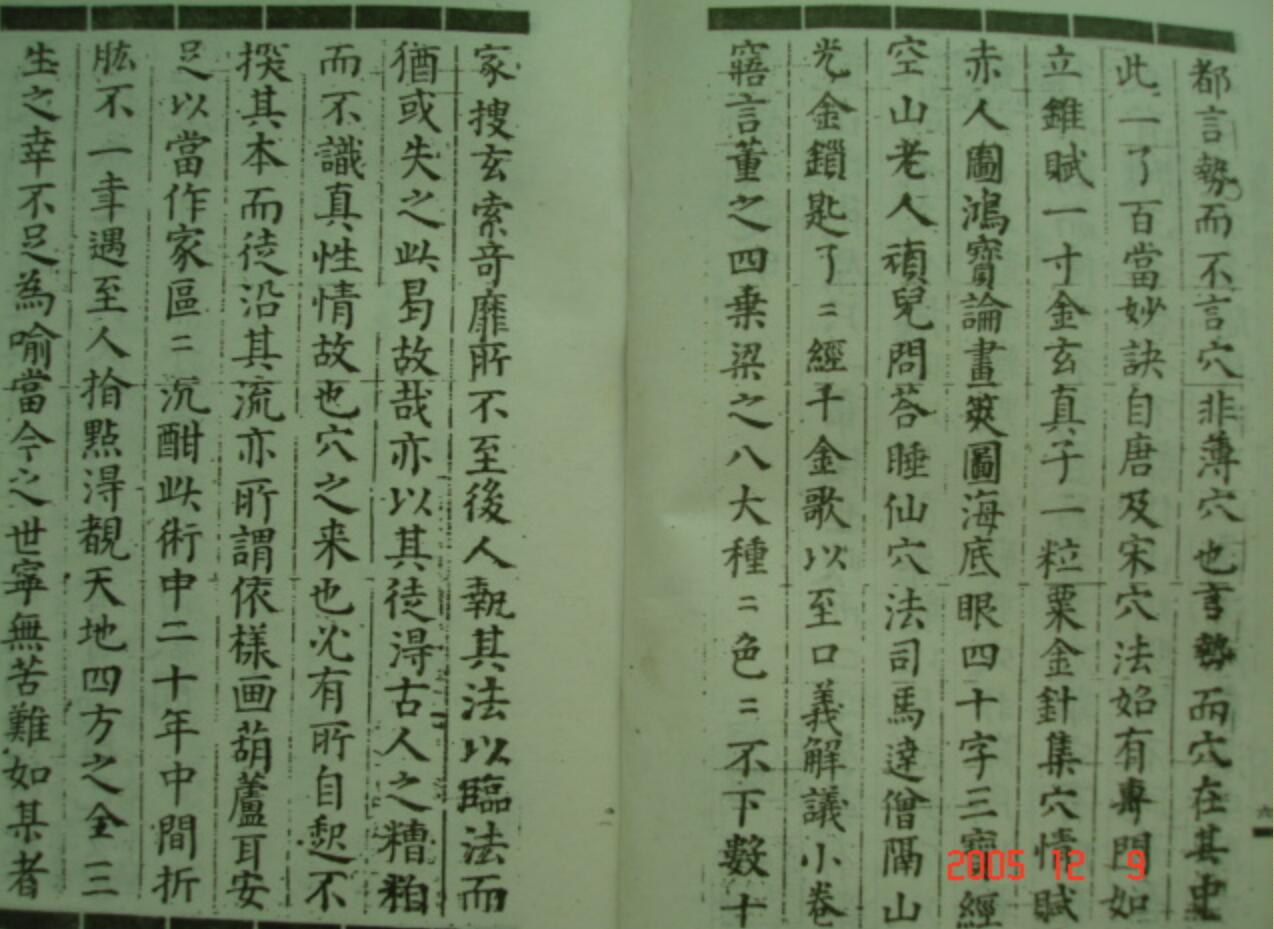 都言勢而不言穴非薄穴也言勢而穴在其中
此一了百當妙訣自唐及宋穴法始有專門如
立錐賦一寸金玄真子一粒粟金針集穴情賦
赤人圖鴻寳論畫筴圖海底眼四十字三寳經
空山老人頑兒問荅睡仙穴法司馬達僧隔山
光金鎖匙了〻經千金歌以至口義解議小卷
寤言董之四乗梁之八大種〻色〻不下数十
家搜玄索竒靡所不至後人執其法以臨法而
猶或失之此曷故哉亦以其徒淂古人之糟粕
而不識真性情故也穴之来也必有所自起不
揆其本而徒沿其流亦所謂依樣画葫蘆耳安
足以當作家區〻沉酣此術中二十年中間折
肱不一幸遇至人指點淂覩天地四方之全三
生之幸不足為喻當今之世寧無苦難如某者
六
2005 12 9